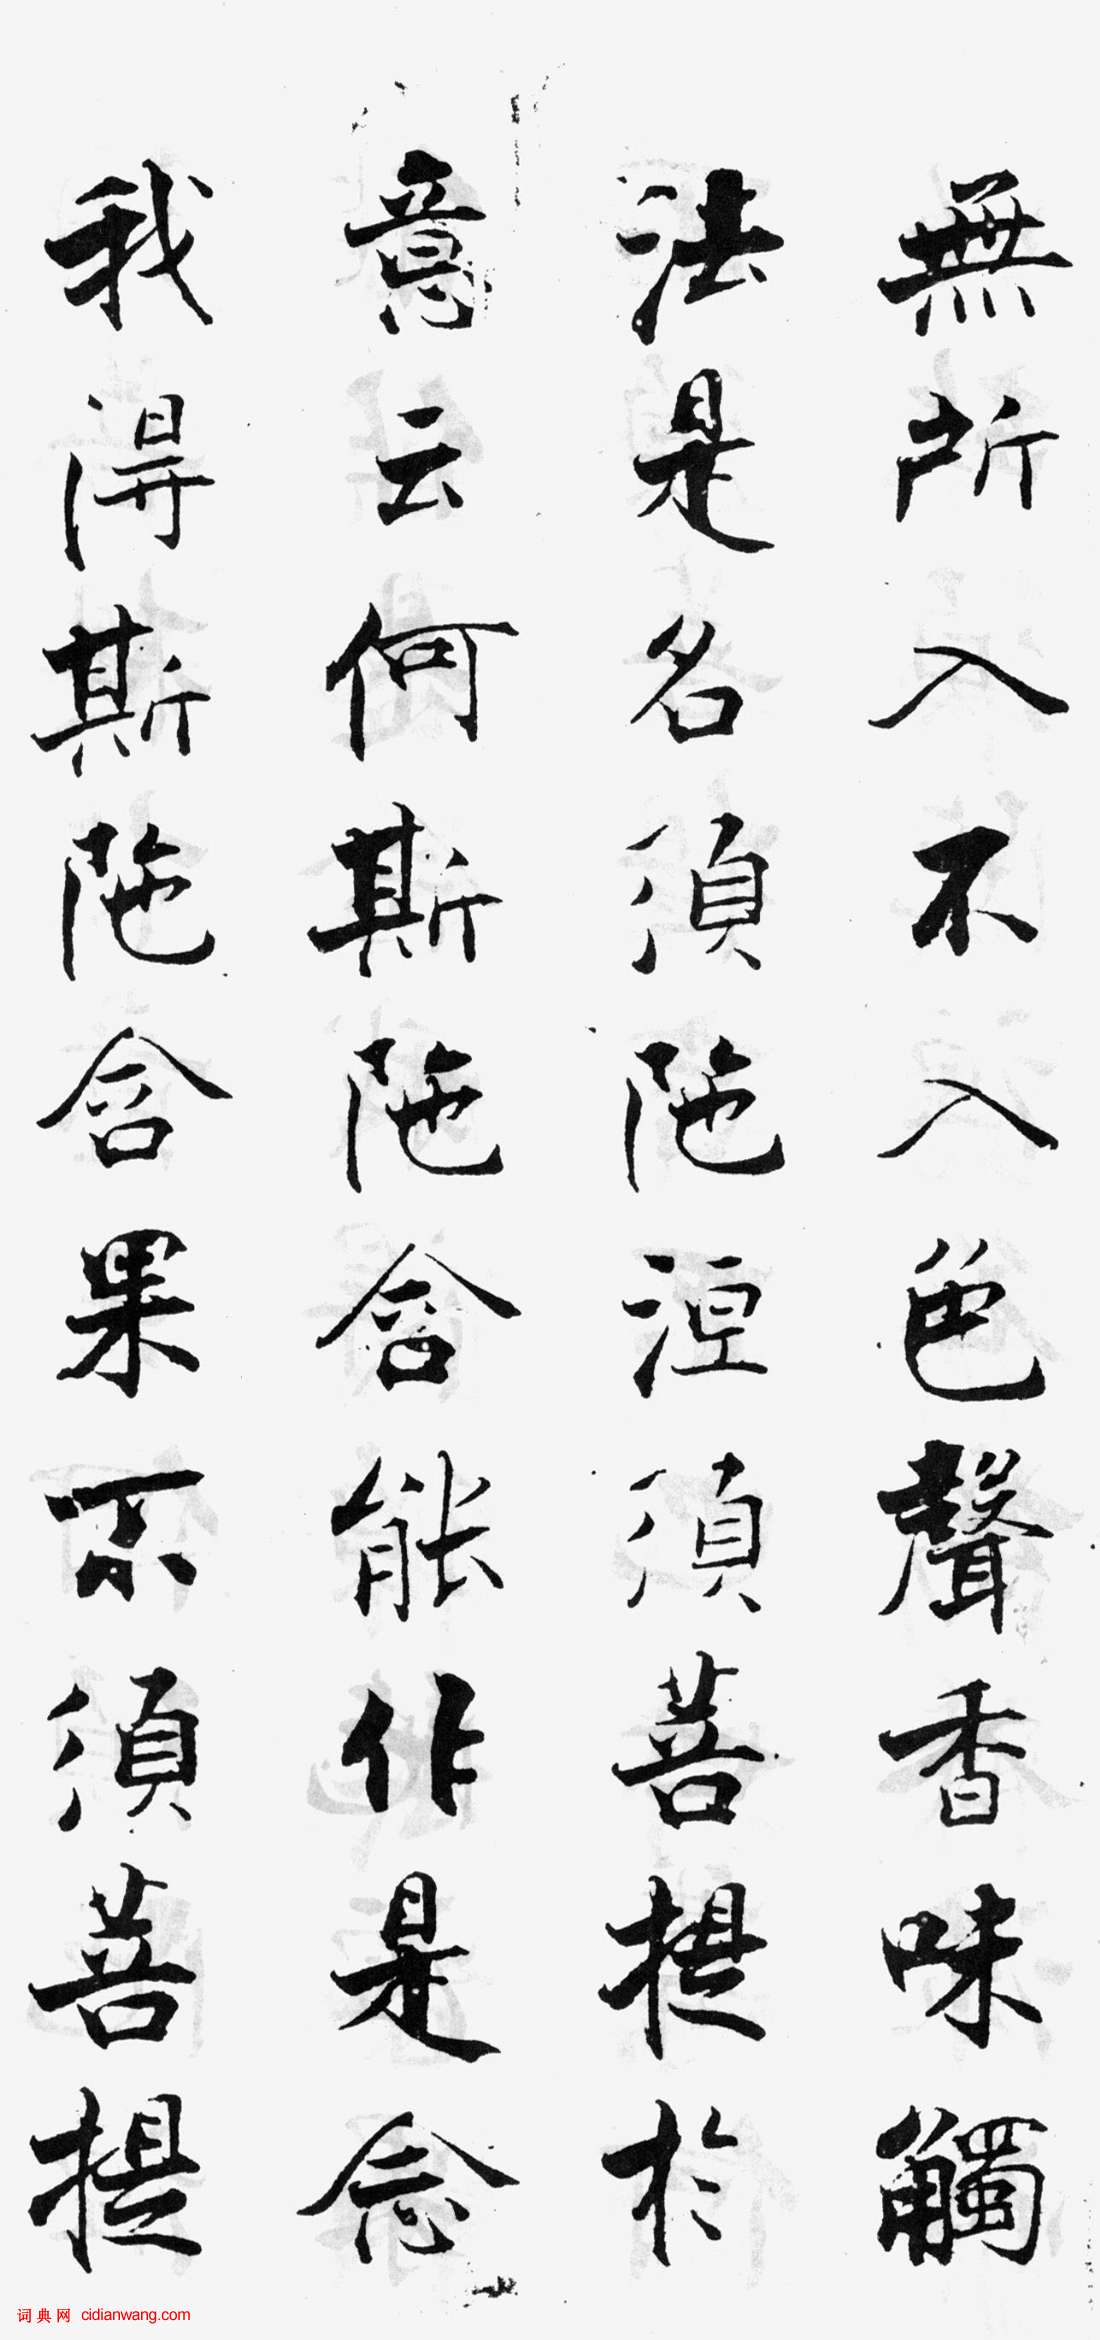 無所入不入色聲香味觸
法是名須陁洹須菩提於
意云何斯陁含能作是念
我得斯陁含果不須菩提
词典网 cidianwang.com